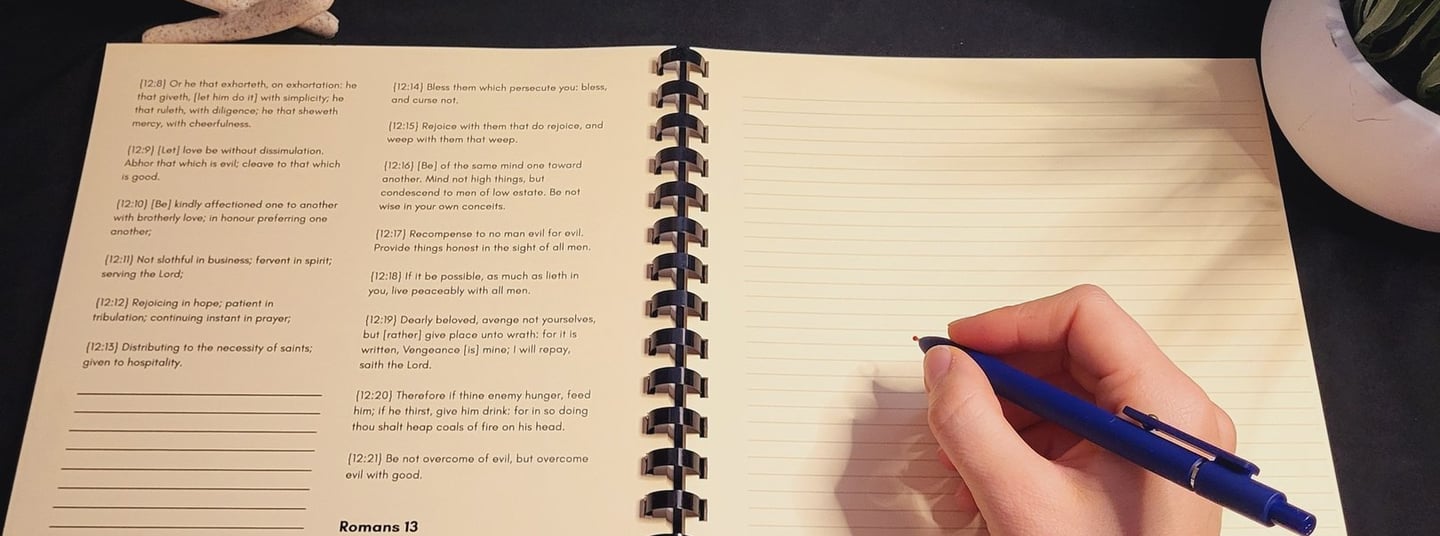 {12:8} Or he that exhorteth, on exhortation: he
that giveth, [let him do it] with simplicity; he
that ruleth, with diligence; he that sheweth
mercy, with cheerfulness.
{12:9} [Let] love be without dissimulation.
Abhor that which is evil; cleave to that which
is good.
{12:10} [Be] kindly affectioned one to another
with brotherly love; in honour preferring one
another;
{12:11} Not slothful in business; fervent in spirit;
serving the Lord;
{12:12} Rejoicing in hope; patient in
tribulation; continuing instant in prayer;
{12:13} Distributing to the necessity of saints;
given to hospitality.
{12:14} Bless them which persecute you: bless,
and curse not.
{12:15} Rejoice with them that do rejoice, and
weep with them that weep.
{12:16} [Be] of the same mind one toward
another. Mind not high things, but
condescend to men of low estate. Be not
wise in your own conceits.
{12:17} Recompense to no man evil for evil.
Provide things honest in the sight of all men.
{12:18} If it be possible, as much as lieth in
you, live peaceably with all men.
{12:19} Dearly beloved, avenge not yourselves,
but [rather] give place unto wrath: for it is
written, Vengeance [is] mine; I will repay,
saith the Lord.
{12:20} Therefore if thine enemy hunger, feed
him; if he thirst, give him drink: for in so doing
thou shalt heap coals of fire on his head.
{12:21} Be not overcome of evil, but overcome
evil with good.
Romans 13